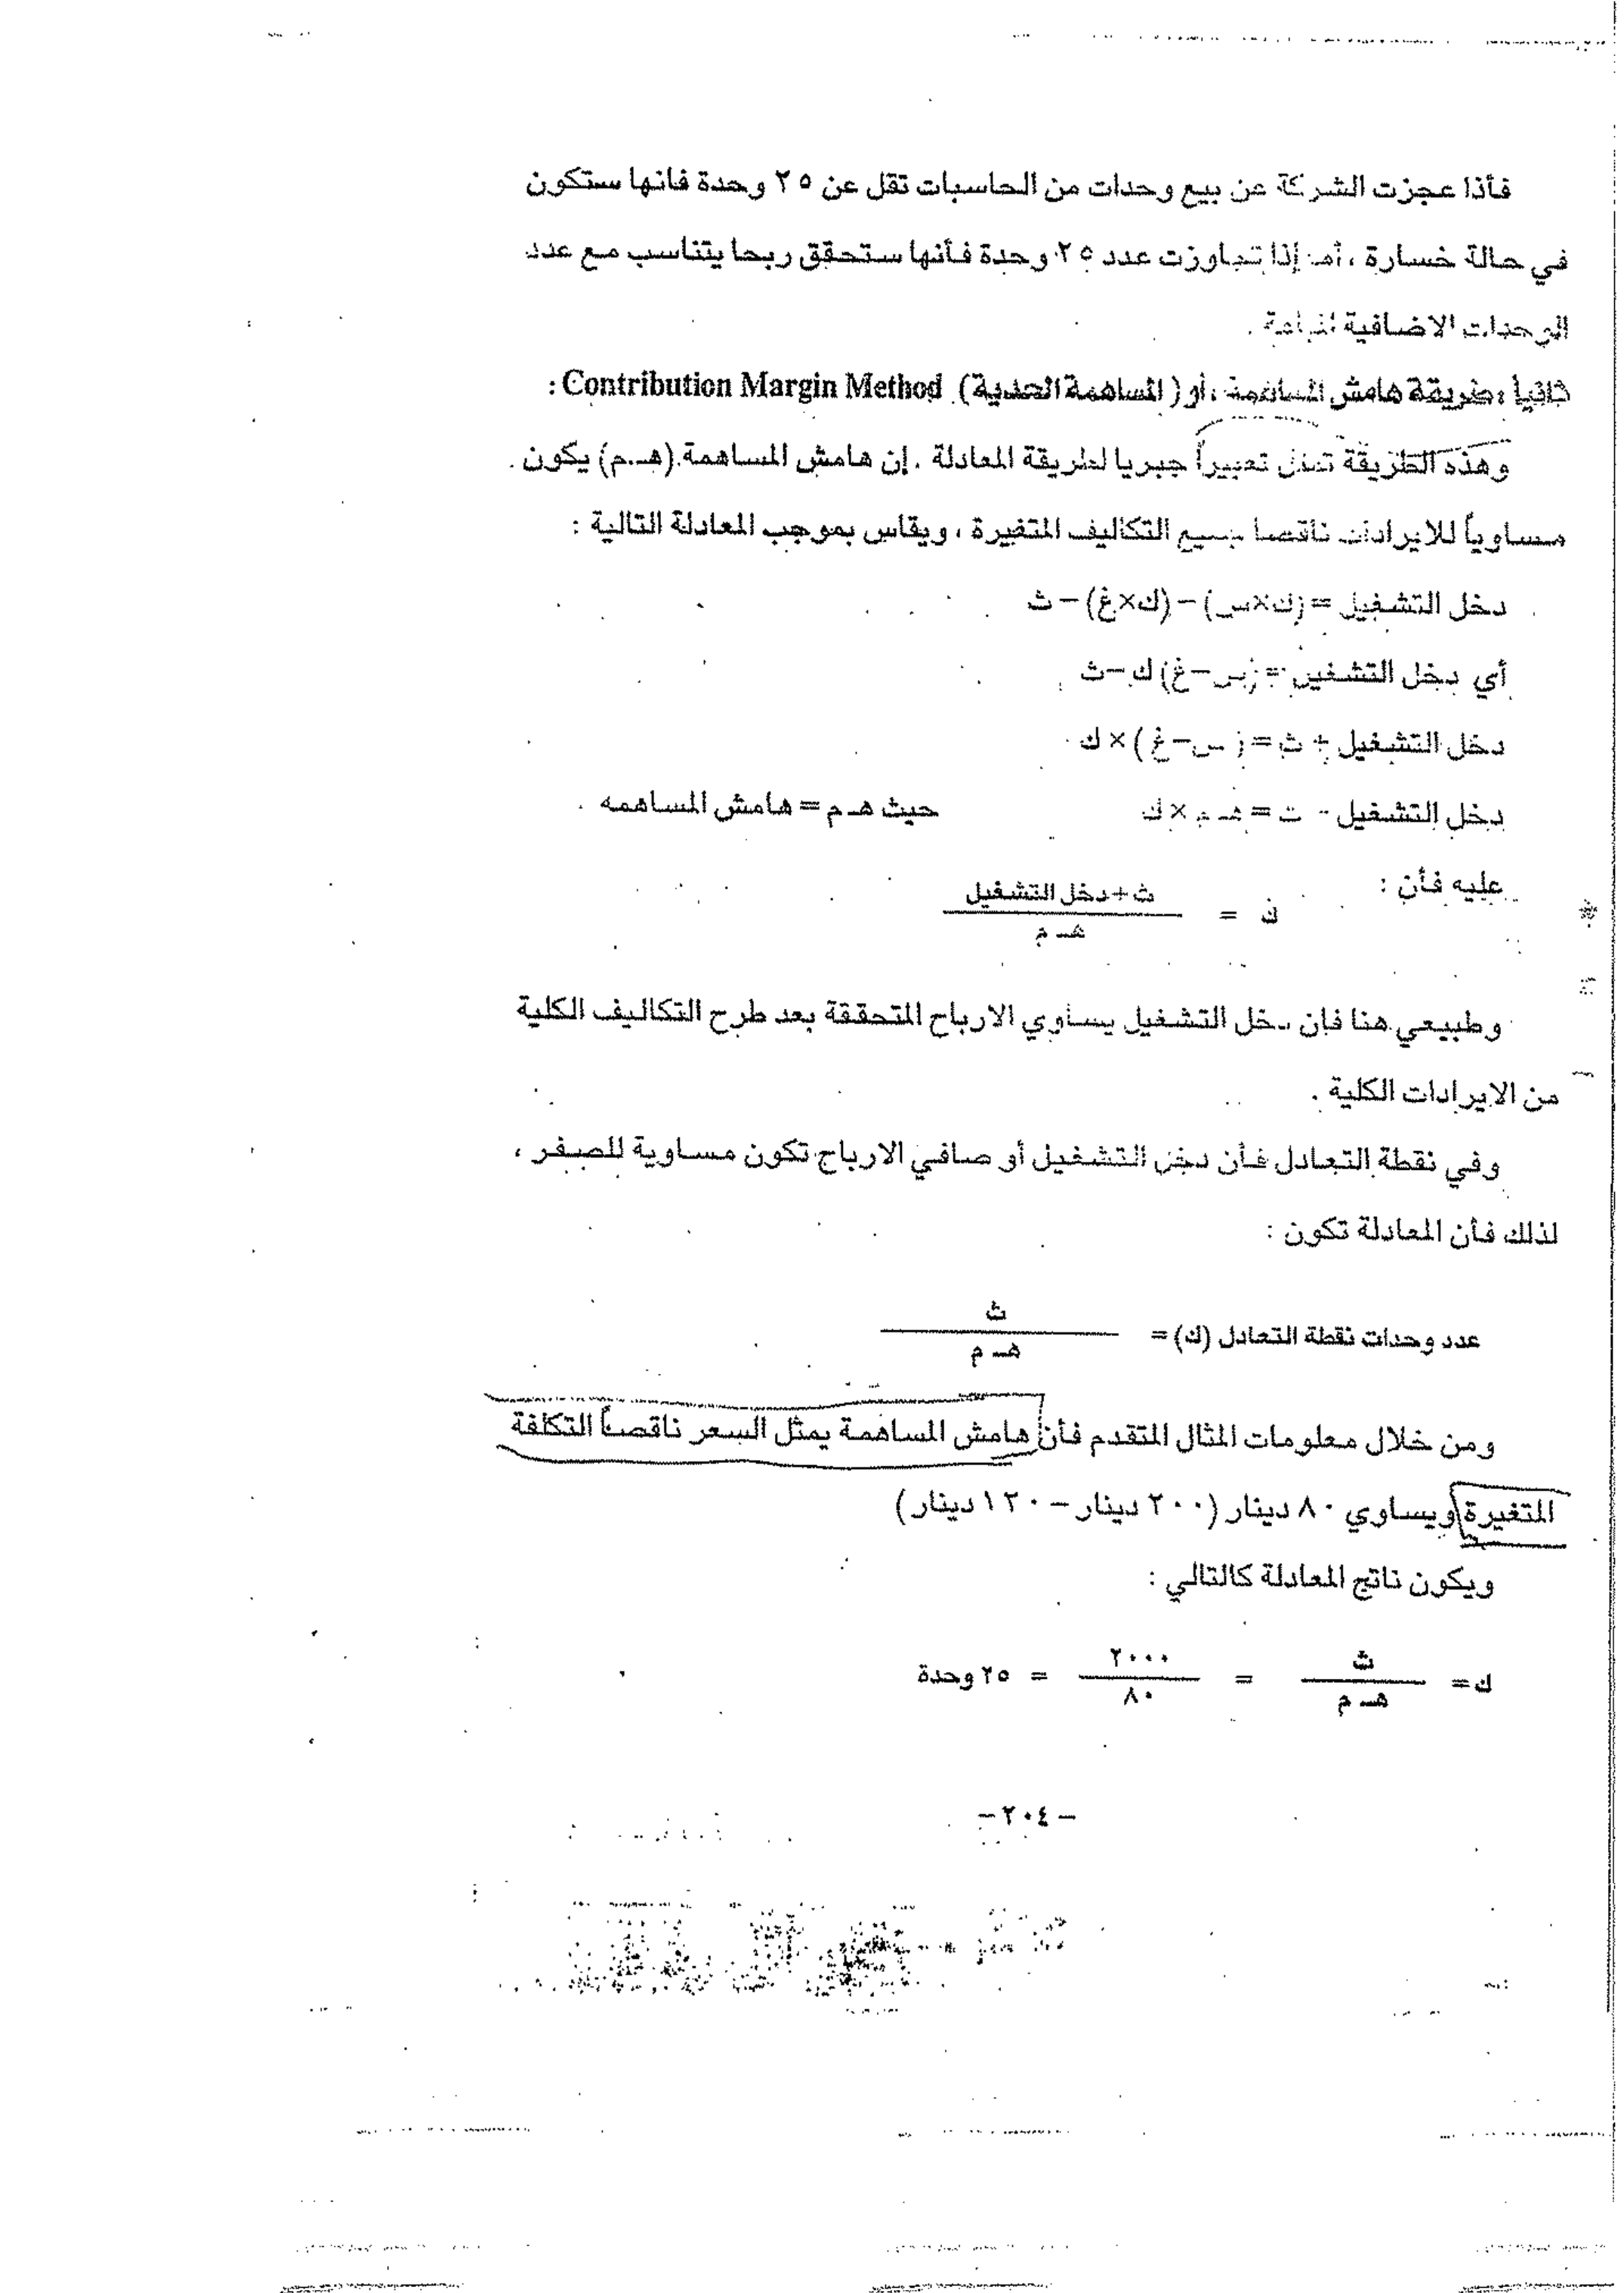 فأذا عجزت الشركة عن بيع وحدات من الحاسبات تقل عن ٢٥ وحدة فانها ستكون
في حالة خسارة ، أما إذا تجاوزت عدد ٢٥ وحدة فأنها ستحقق ربحا يتناسب مع عدد
الوحدات الاضافية المباعة .
ثانياً : طريقة هامش المساهمة ، أو ( المساهمة الحدية ) Contribution Margin Method :
وهذه الطريقة تمثل تعبيراً جبريا لطريقة المعادلة . إن هامش المساهمة (هـ.م) يكون
مساوياً للايرادات ناقصا جميع التكاليف المتغيرة ، ويقاس بموجب المعادلة التالية :
دخل التشغيل = (ك×س) – (ك×غ) – ث
أي دخل التشغيل = (س–غ) ك–ث
دخل التشغيل + ث = ( س–غ ) × ك
دخل التشغيل - ث = هـ م × ك حيث هـ م = هامش المساهمه .
عليه فأن :
ث+دخل التشغيل
ك =
هـ م
وطبيعي هنا فإن دخل التشغيل يساوي الارباح المتحققة بعد طرح التكاليف الكلية
من الايرادات الكلية .
وفي نقطة التعادل فأن دخل التشغيل أو صافي الارباح تكون مساوية للصفر ،
لذلك فأن المعادلة تكون :
ث
عدد وحدات نقطة التعادل (ك) =
هـ م
ومن خلال معلومات المثال المتقدم فأن هامش المساهمة يمثل السعر ناقصاً التكلفة
المتغيرة ويساوي ٨٠ دينار (٢٠٠ دينار – ١٢٠ دينار)
ويكون ناتج المعادلة كالتالي :
ث ٢٠٠٠
ك = = = ٢٥ وحدة
هـ م ٨٠
– ٢٠٤ –